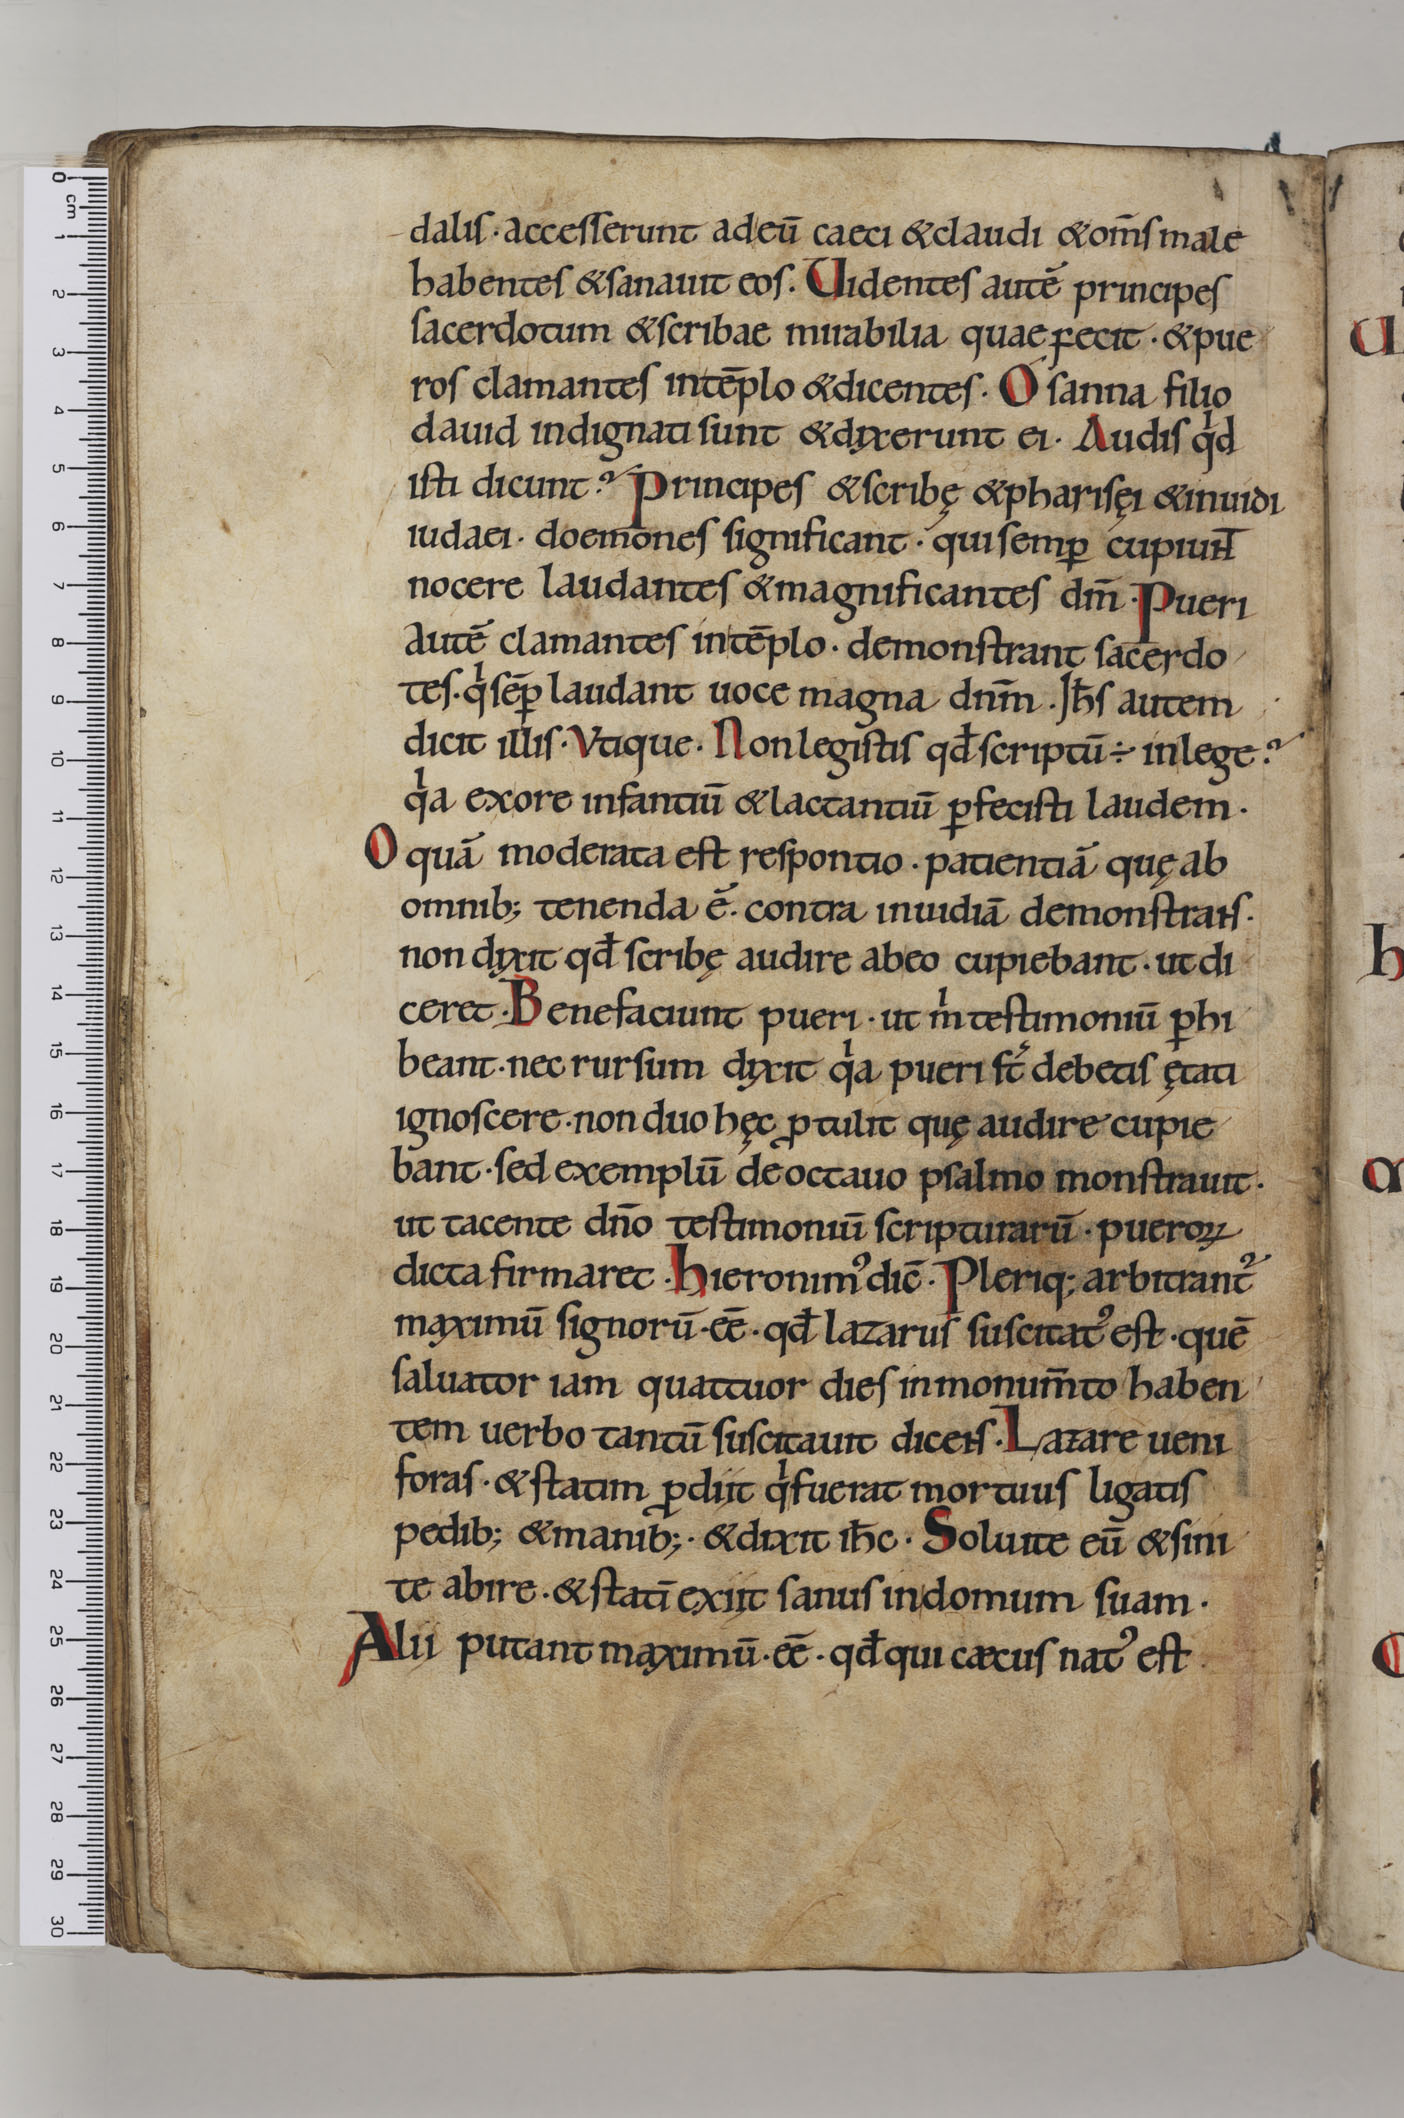 dalis · accesserunt ad eū caeci & claudi & om̄s male
habentes & sanauit eos. Uidentes autē principes
sacerdotum & scribae mirabilia quae fecit · & pue
ros clamantes in tēplo & dicentes · Osanna filio
dauid indignati sunt & dyxerunt ei · Audis qͥd
isti dicunt? Principes & scribę & pharisęi & inuidi
iudaei · doemones significant · qui semꝑ cupiunt
nocere laudantes & magnificantes dm̄ · Pueri
autē clamantes in tēplo · demonstrant sacerdo
tes · qͥ sēꝑ laudant uoce magna dnm̄ · Jhs̄ autem
dicit illis · Vtique · Non legistis qd̄ scriptū ÷ in lege?
qͥa ex ore infantiū & lactantiū ꝑfecisti laudem ·
O quā moderata est respontio · patientiā quę ab
omnib; tenenda ē · contra inuidiā demonstrans ·
non dyxit qd̄ scribę audire ab eo cupiebant · ut di
ceret · Bene faciunt pueri · ut mͥ testimoniū ꝑhi
beant · nec rursum dyxit qͥa pueri st̄ debetis ętati
ignoscere · non duo hęc ꝓtulit quę audire cupie
bant · sed exemplū de octauo psalmo monstrauit ·
ut tacente dn̄o testimoniū scripturarū · pueroꝝ
dicta firmaret · hieronim᾿ dic̄ · Pleriq; arbitrant᾿
maximū signorū · eē · qd̄ lazarus suscitat᾿ est · quē
saluator iam quattuor dies in monum̄to haben
tem uerbo tantū suscitauit dicens · Lazare ueni
foras · & statim ꝓdiit qͥ fuerat mortuus ligatis
pedib; & manib; · & dixit ih̄c · Soluite eū & sini
te abire · & statī exiit sanus in domum suam ·
Alii putant maximū · eē · qd̄ qui cæcus nat᾿ est